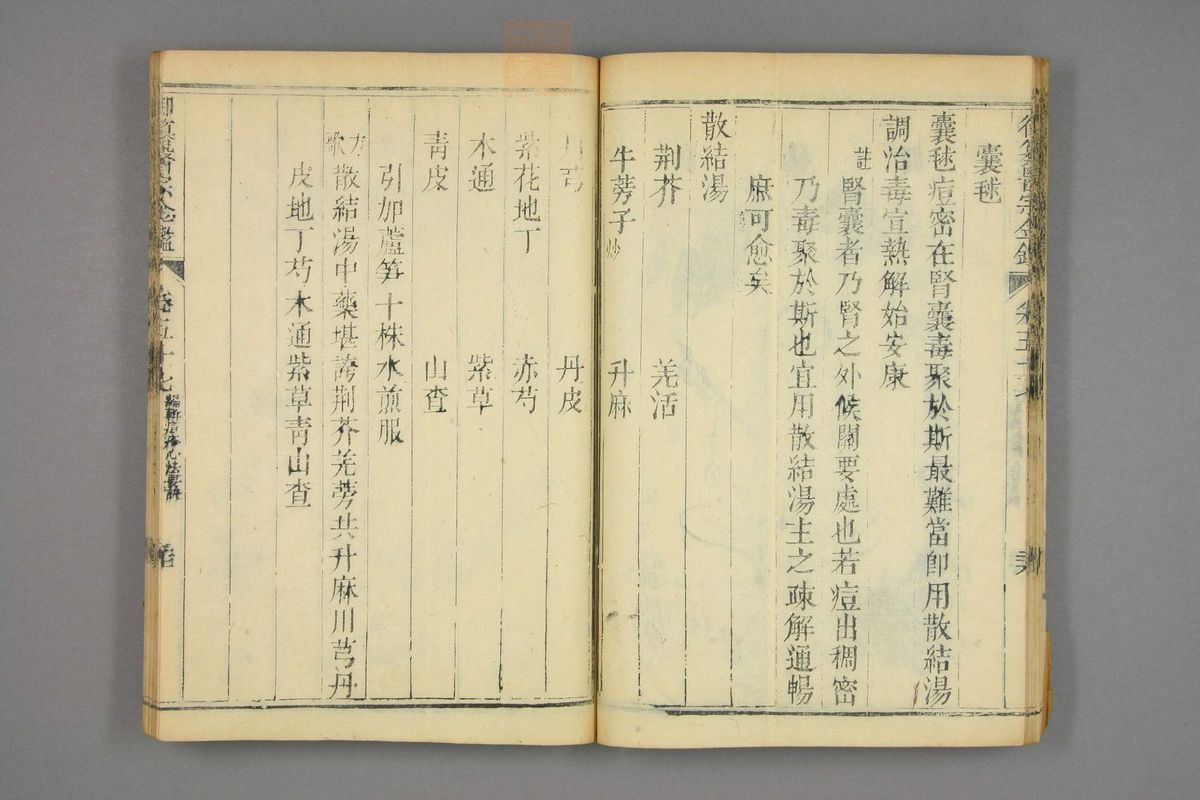 御纂醫宗金鑑 卷五十七
囊毬
囊毬痘密在腎囊毒聚於斯最難當卽用散結湯
調治毒宣熱解始安康
註 腎囊者乃腎之外候關要處也若痘出稠密
乃毒聚於斯也宜用散結湯主之疎解通暢
庶可愈矣
散結湯
荆芥 羌活
牛蒡子炒 升麻
川芎 丹皮
紫花地丁 赤芍
木通 紫草
青皮 山查
引加蘆笋十株水煎服
方歌 散結湯中藥堪誇荆芥羌蒡共升麻川芎丹
皮地丁芍木通紫草青山查
御纂醫宗金鑑 卷五十七 編輯痘疹心法要訣